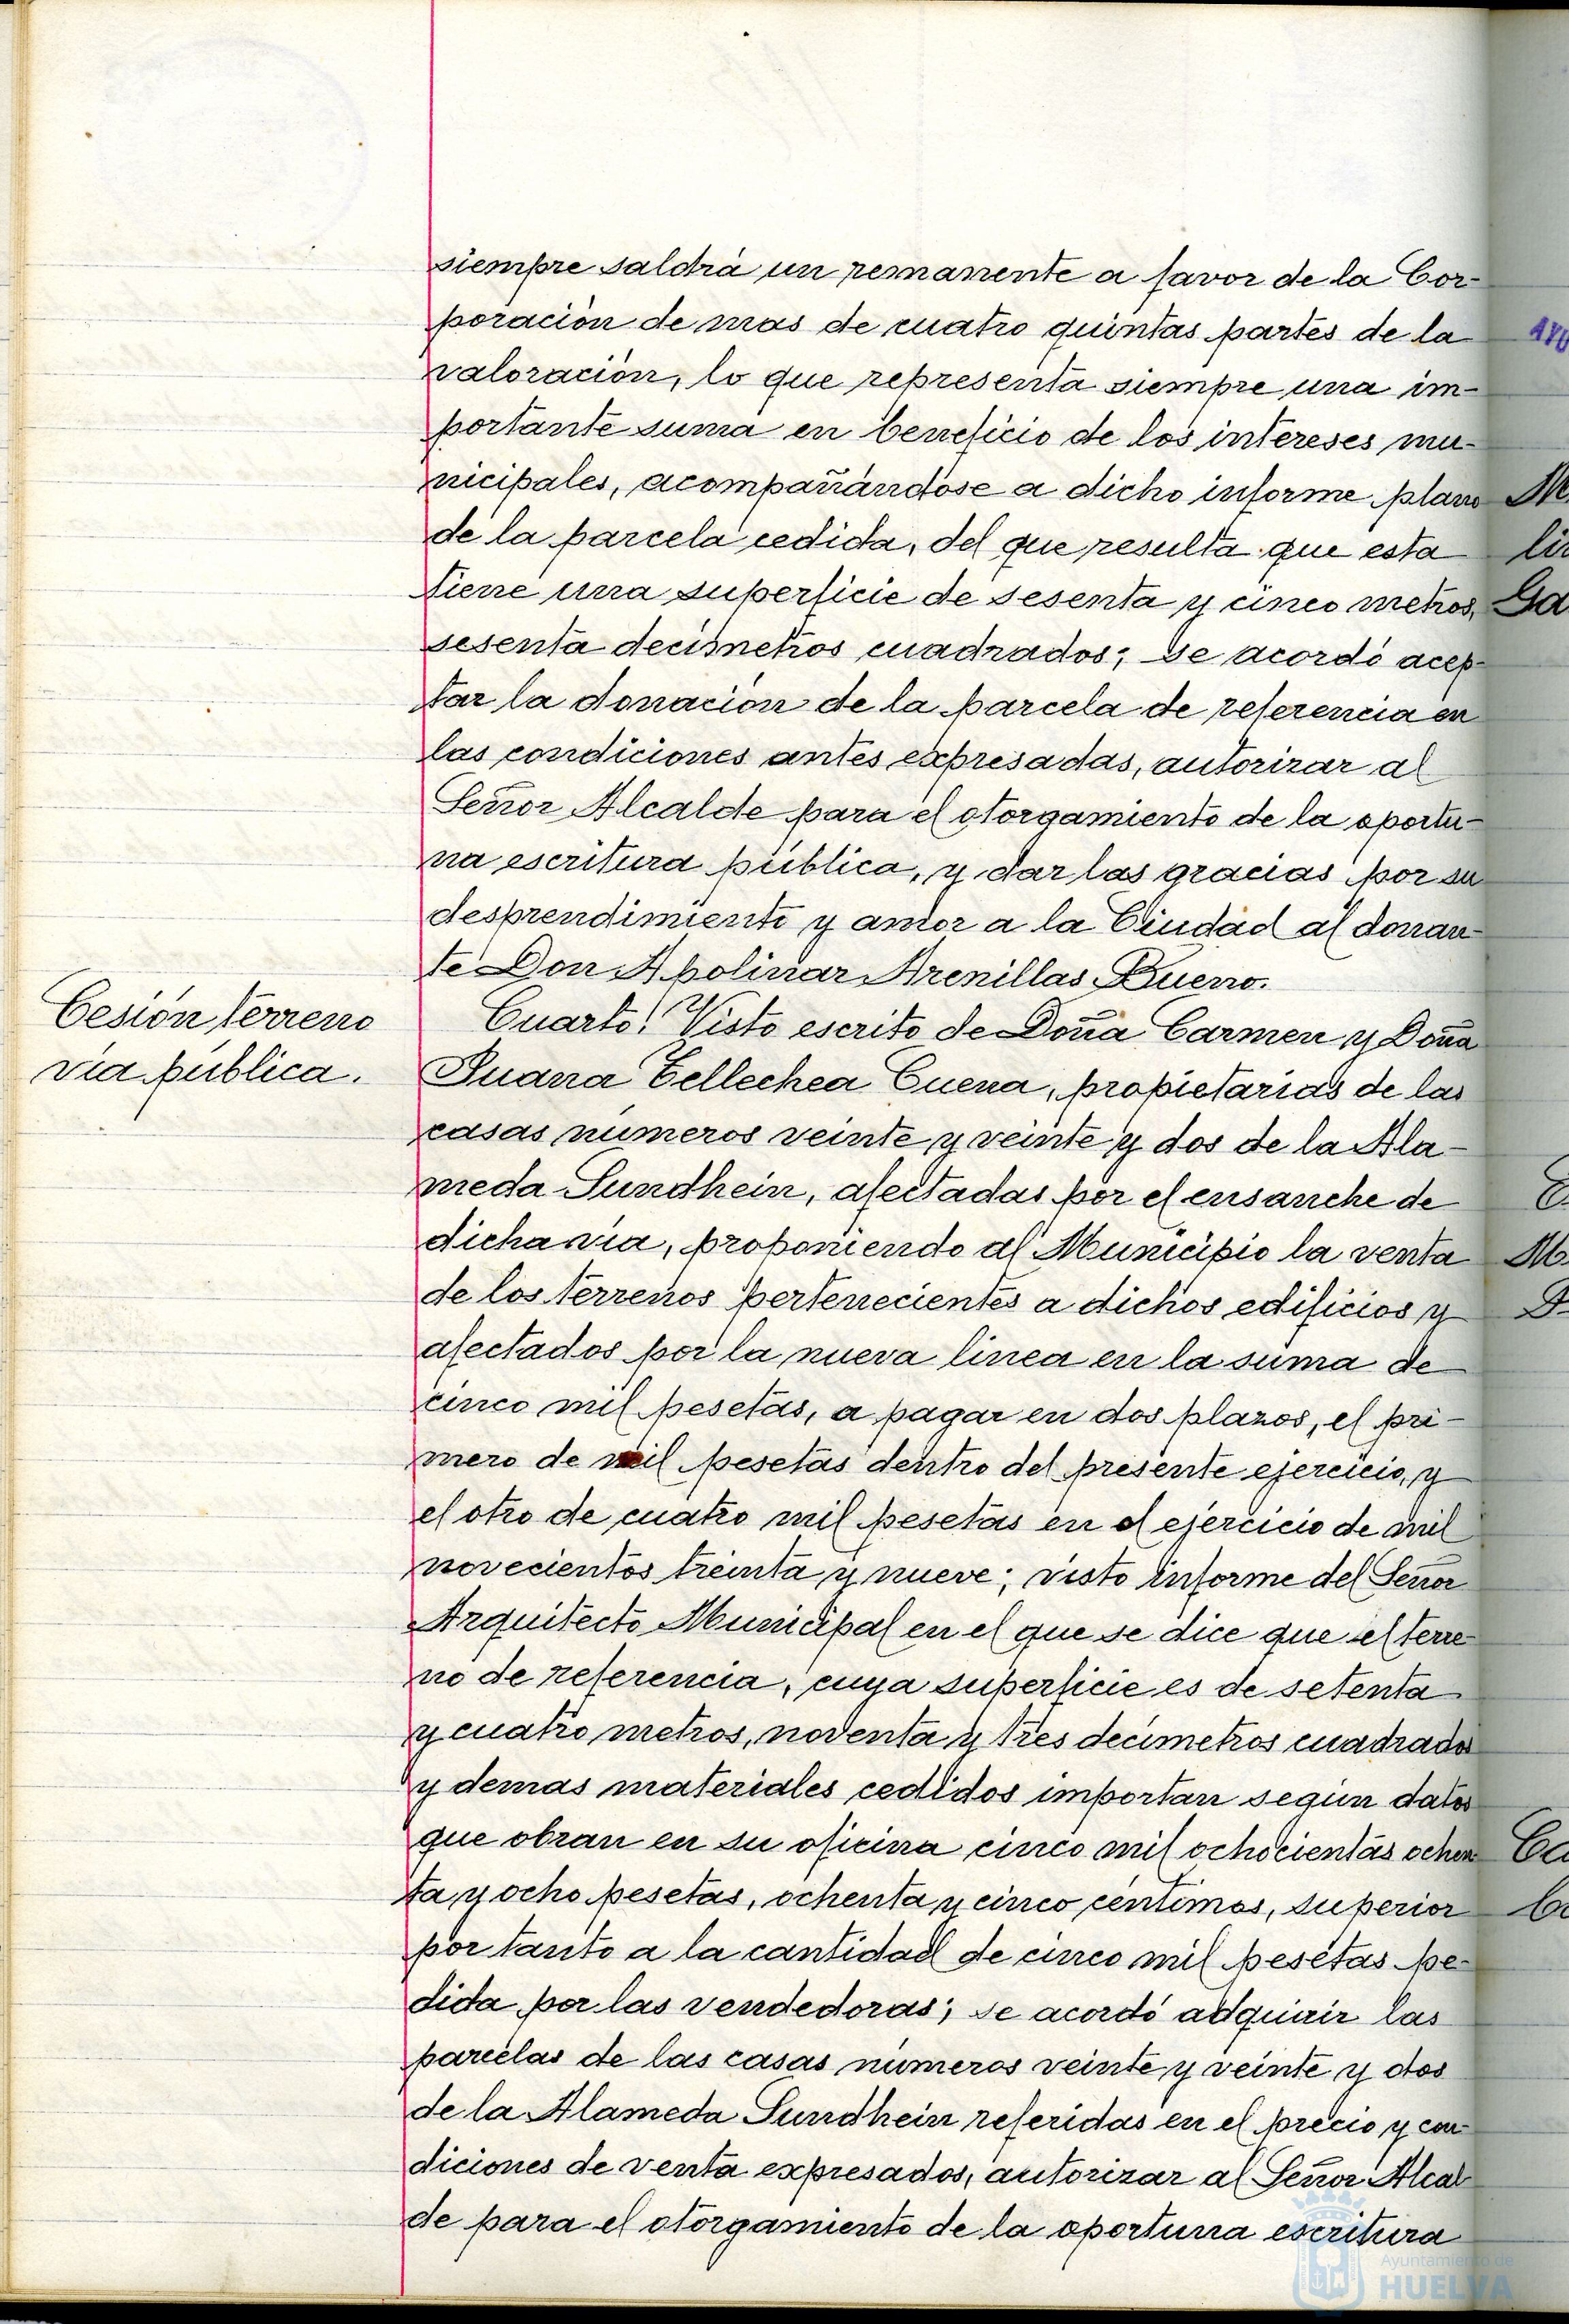 siempre saldrá un remanente a favor de la Cor-
poración de mas de cuatro quintas partes de la
valoración, lo que representa siempre una im-
portante suma en beneficio de los intereses mu-
nicipales, acompañándose a dicho informe plano
de la parcela cedida, del que resulta que esta
tiene una superficie de sesenta y cinco metros,
sesenta decímetros cuadrados; se acordó acep-
tar la donación de la parcela de referencia en
las condiciones antes expresadas, autorizar al
Señor Alcalde para el otorgamiento de la oportu-
na escritura pública, y dar las gracias por su
desprendimiento y amor a la Ciudad al donan-
te Don Apolinar Arenillas Bueno.
Cesión terreno
vía pública.
Cuarto! Visto escrito de Doña Carmen y Doña
Juana Tellechea Cuena, propietarias de las
casas números veinte y veinte y dos de la Ala-
meda Sundhein, afectadas por el ensanche de
dicha vía, proponiendo al Municipio la venta
de los terrenos pertenecientes a dichos edificios y
afectados por la nueva linea en la suma de
cinco mil pesetas, a pagar en dos plazos, el pri-
mero de mil pesetas dentro del presente ejercicio, y
el otro de cuatro mil pesetas en el ejercicio de mil
novecientos treinta y nueve; visto informe del Señor
Arquitecto Municipal en el que se dice que el terre-
no de referencia, cuya superficie es de setenta
y cuatro metros, noventa y tres decímetros cuadrados
y demas materiales cedidos importan según datos
que obran en su oficina cinco mil ochocientas ochen
ta y ocho pesetas, ochenta y cinco céntimos, superior
por tanto a la cantidad de cinco mil pesetas pe-
dida por las vendedoras; se acordó adquirir las
parcelas de las casas números veinte y veinte y dos
de la Alameda Sundhein referidas en el precio y con-
diciones de venta expresados, autorizar al Señor Alcal-
de para el otorgamiento de la oportuna escritura
Ayuntamiento de
HUELVA